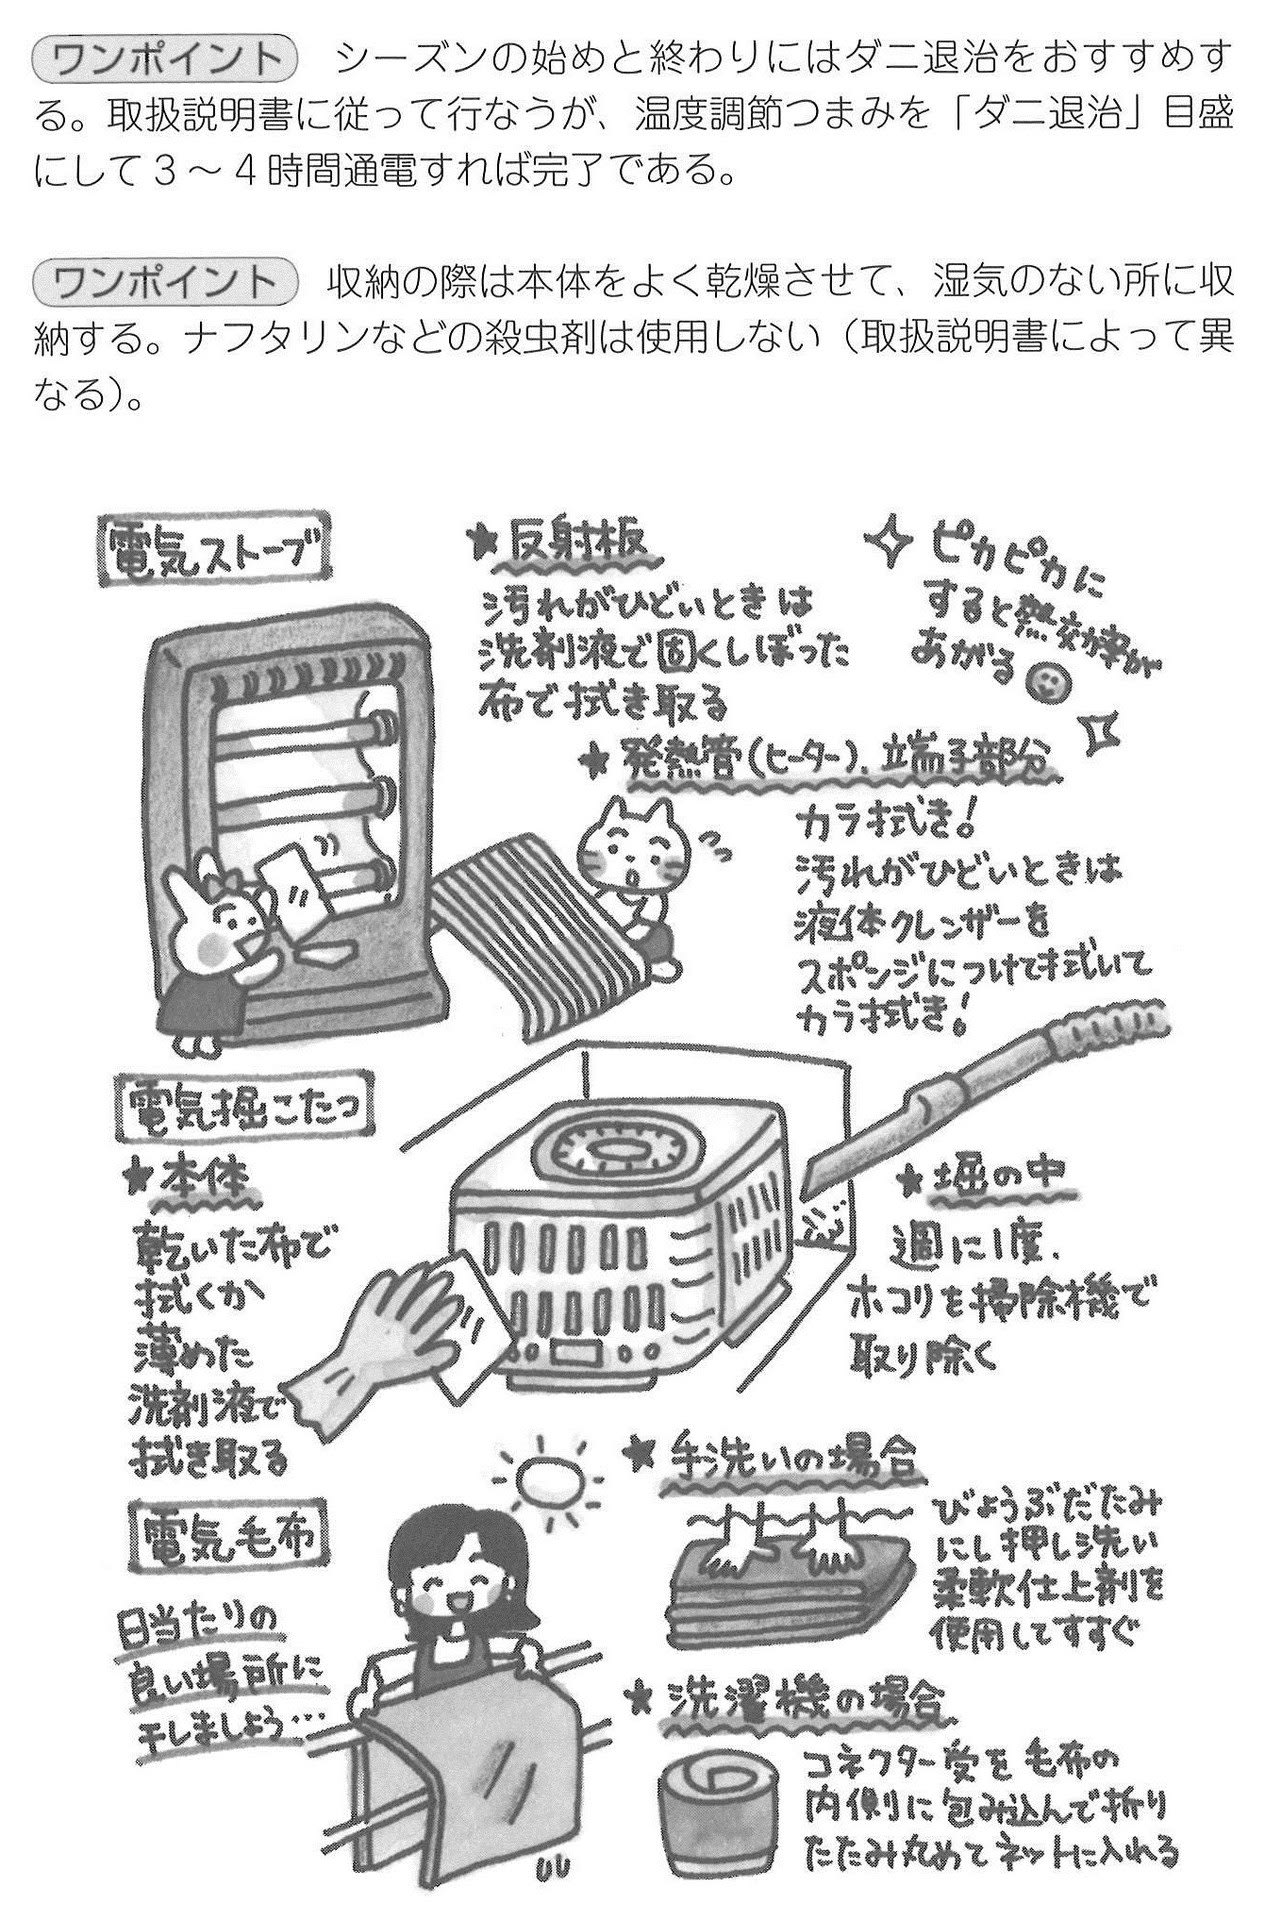 ワンポイント シーズンの始めと終わりにはダニ退治をおすすめす
る。取扱説明書に従って行なうが、温度調節つまみを「ダニ退治」目盛
にして3～4時間通電すれば完了である。
ワンポイント 収納の際は本体をよく乾燥させて、湿気のない所に収
納する。ナフタリンなどの殺虫剤は使用しない（取扱説明書によって異
なる）。
電気ストーブ
★反射板
汚れがひどいときは
洗剤液で固くしぼった
布で拭き取る
ピカピカに
すると熱効率が
あがる
★発熱管(ヒーター)、端子部分
カラ拭き!
汚れがひどいときは
液体クレンザーを
スポンジにつけて拭いて
カラ拭き!
電気掘こたつ
★本体
乾いた布で
拭くか
薄めた
洗剤液で
拭き取る
★堀の中
週に1度、
ホコリを掃除機で
取り除く
電気毛布
日当たりの
良い場所に
干しましょう…
★手洗いの場合
びょうぶだたみ
にし押し洗い
柔軟仕上剤を
使用してすすぐ
★洗濯機の場合
コネクター受を毛布の
内側に包み込んで折り
たたみ丸めてネットに入れる